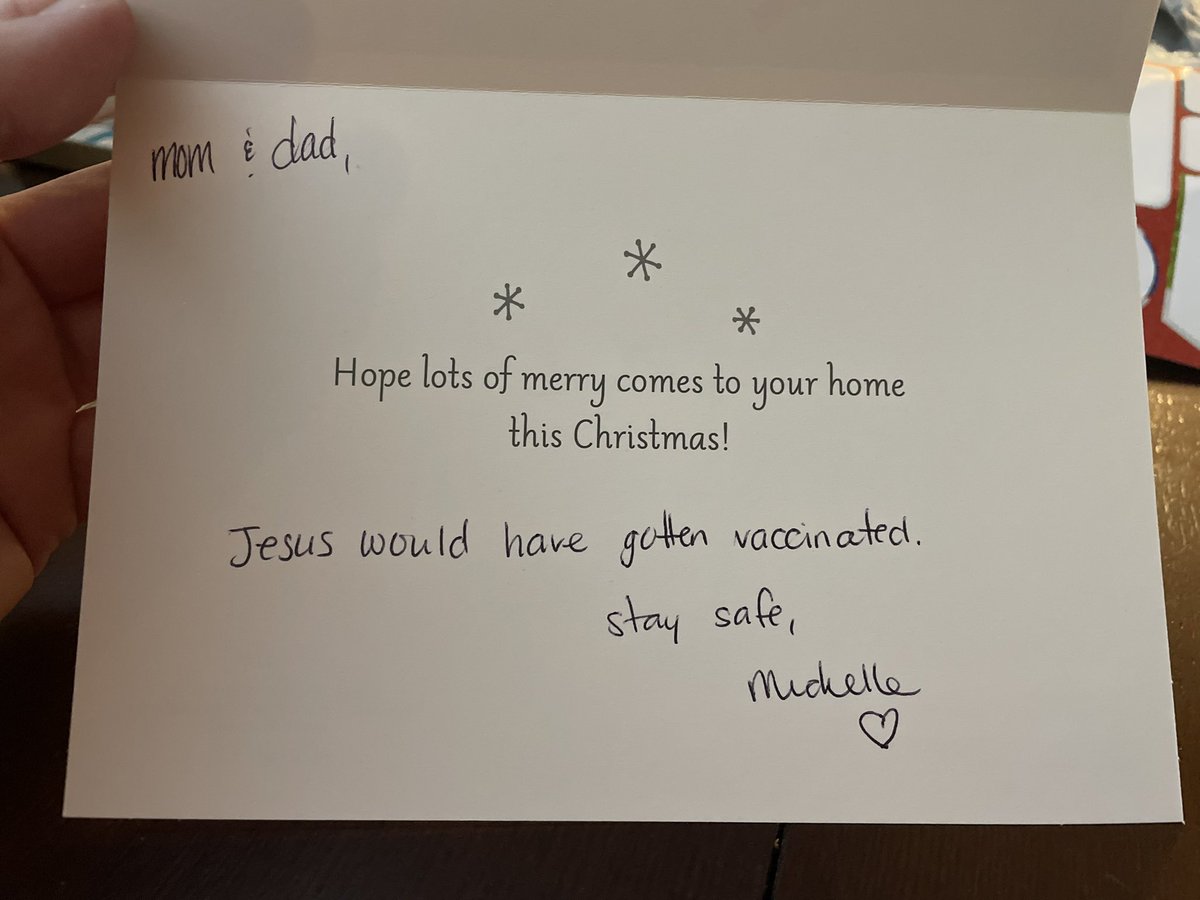 mom & dad,
Hope lots of merry comes to your home
this Christmas!
Jesus would have gotten vaccinated.
stay safe,
Michelle